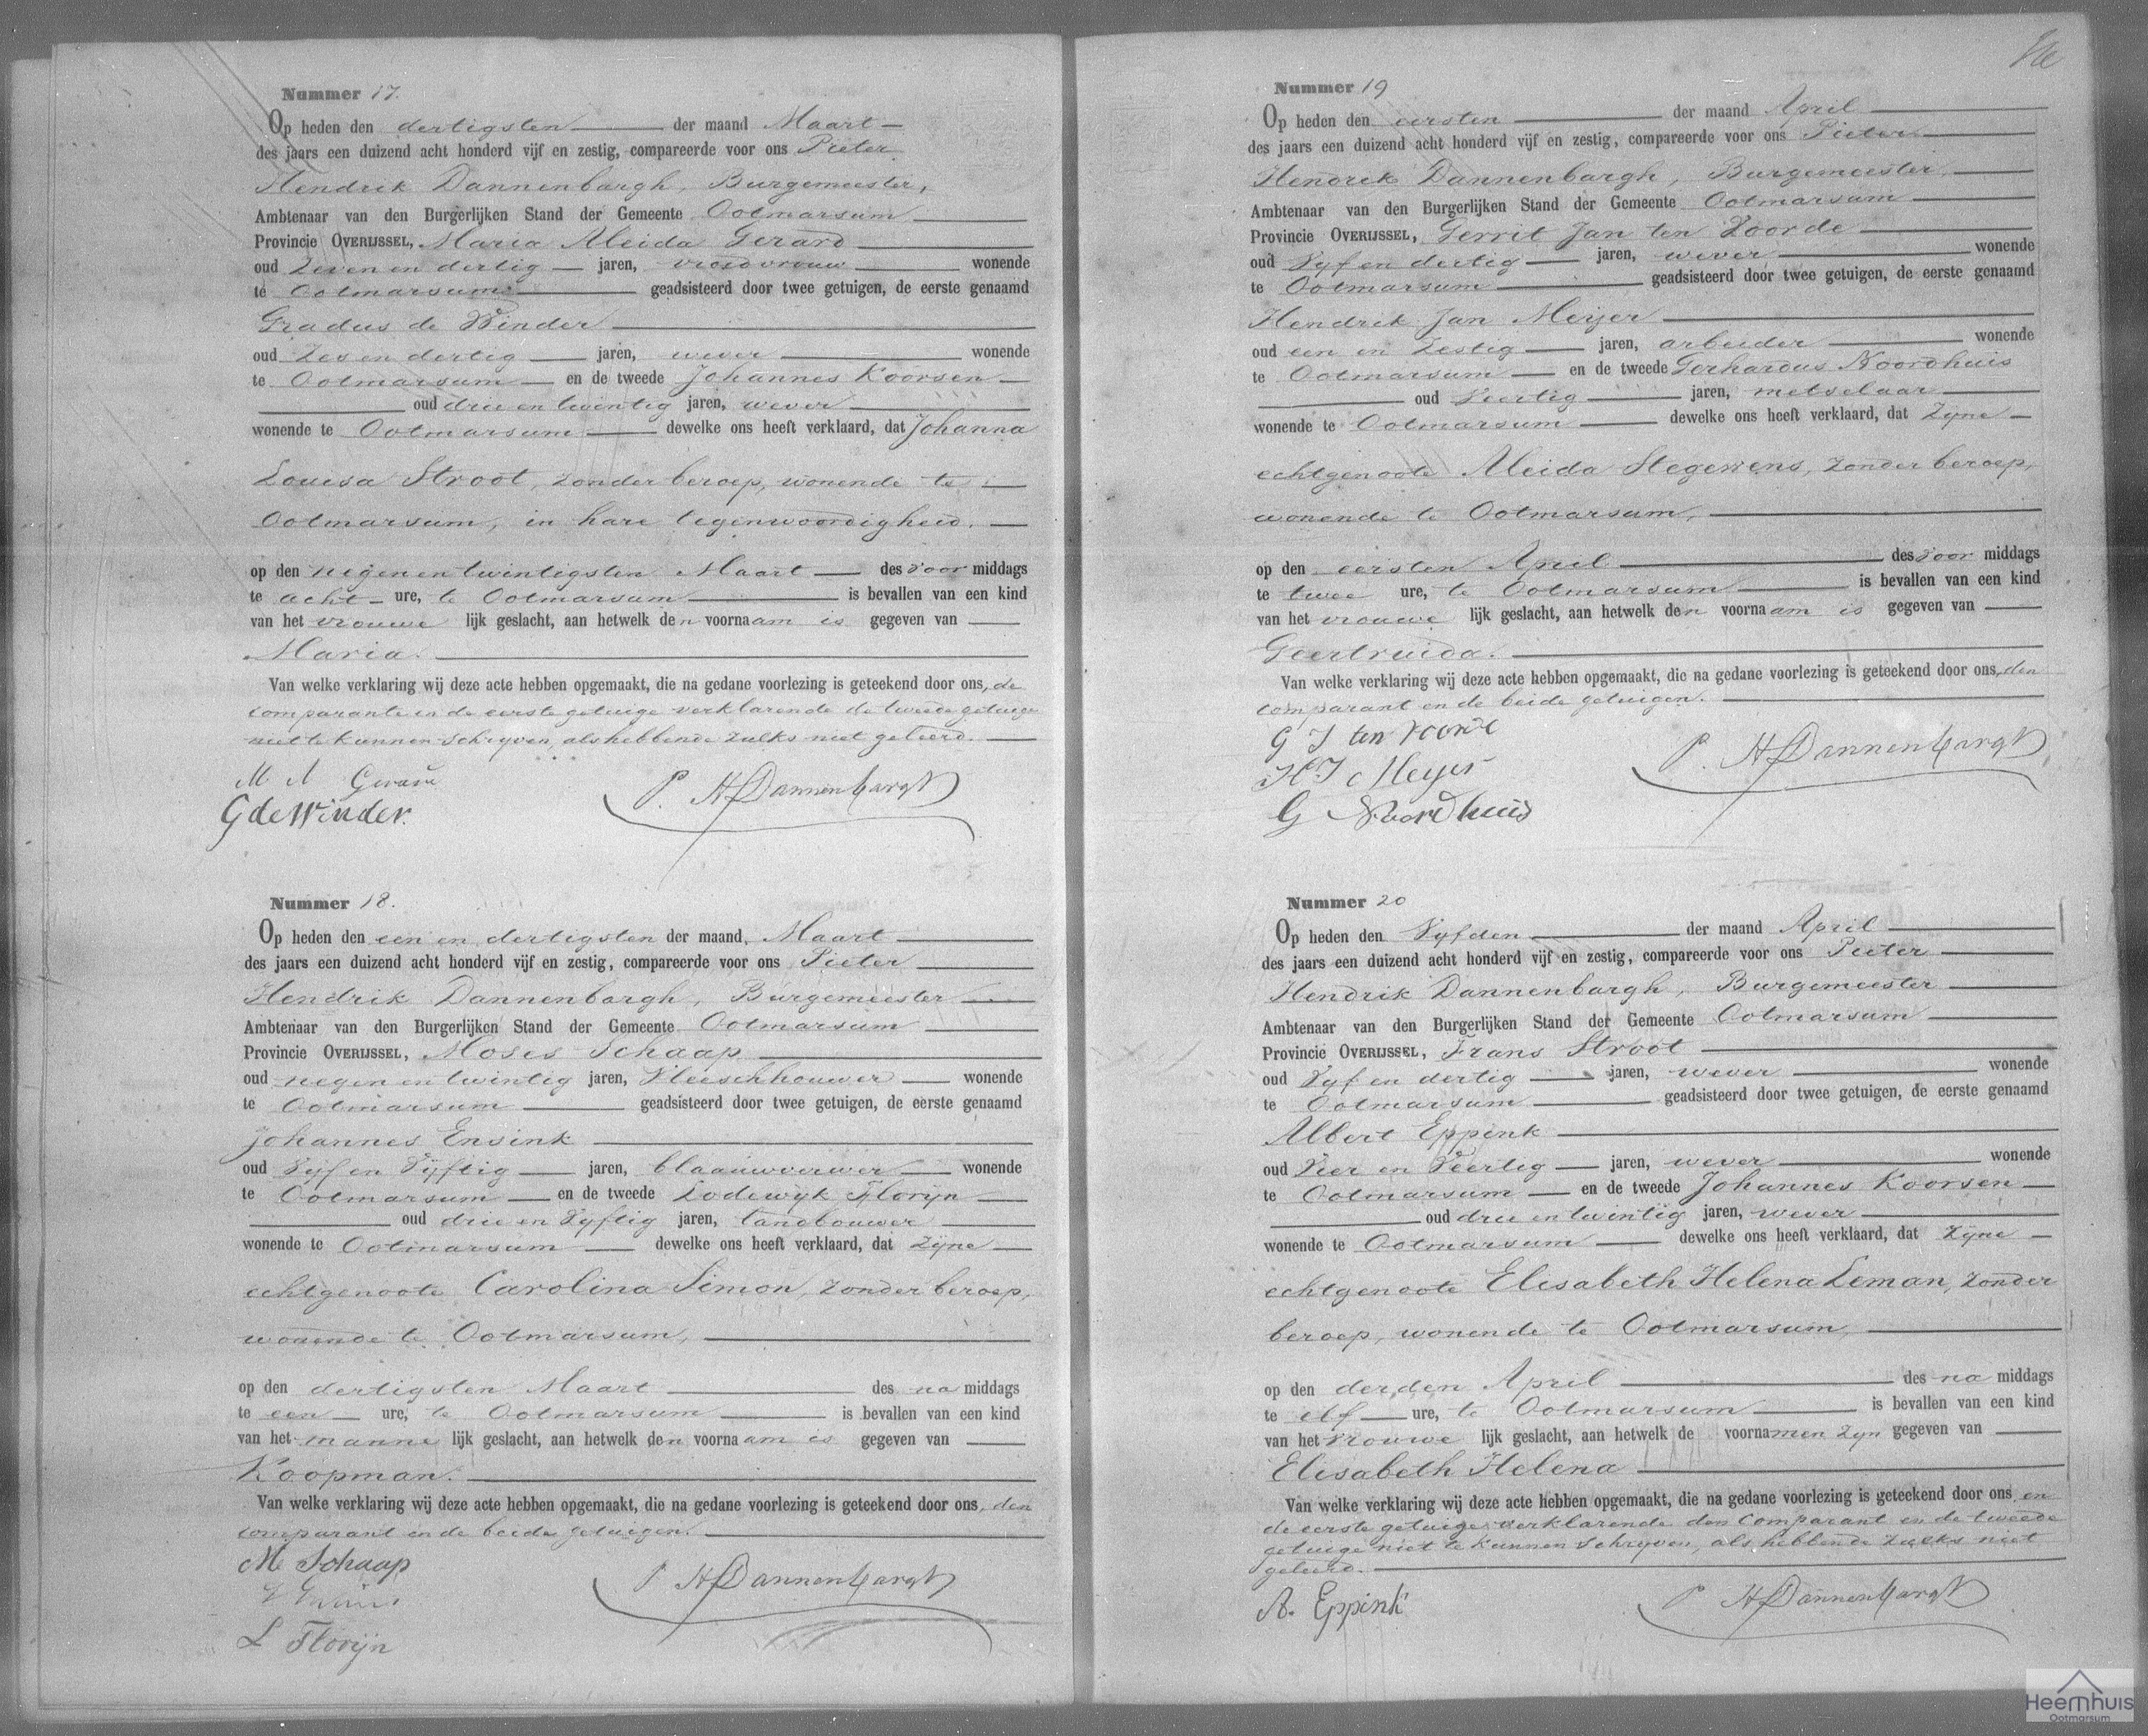 Nummer 17.
Op heden den dertigsten der maand Maart
des jaars een duizend acht honderd vijf en zestig, compareerde voor ons Pieter
Hendrik Dannenbargh, Burgemeester,
Ambtenaar van den Burgerlijken Stand der Gemeente Ootmarsum
Provincie OVERIJSSEL, Maria Aleida Gerard
oud Zeven en dertig jaren, vroedvrouw wonende
te Ootmarsum geadsisteerd door twee getuigen, de eerste genaamd
Gradus de Winder
oud Zes en dertig jaren, wever wonende
te Ootmarsum en de tweede Johannes Koorsen
oud drie en twintig jaren, wever
wonende te Ootmarsum dewelke ons heeft verklaard, dat Johanna
Louisa Stroot, zonder beroep, wonende te
Ootmarsum, in hare tegenwoordigheid.
op den negen en twintigsten Maart des voor middags
te acht ure, te Ootmarsum is bevallen van een kind
van het vrouwe lijk geslacht, aan hetwelk den voornaam is gegeven van
Maria.
Van welke verklaring wij deze acte hebben opgemaakt, die na gedane voorlezing is geteekend door ons, de
comparante en de eerste getuige verklarende de tweede getuige
niet te kunnen schryven, als hebbende zulks niet geleerd.
M A Gerard
G de Winder
P. H Dannenbargh
Nummer 18.
Op heden den een en dertigsten der maand, Maart
des jaars een duizend acht honderd vijf en zestig, compareerde voor ons Pieter
Hendrik Dannenbargh, Burgemeester
Ambtenaar van den Burgerlijken Stand der Gemeente Ootmarsum
Provincie OVERIJSSEL, Moses Schaap
oud negen en twintig jaren, Vleeschhouwer wonende
te Ootmarsum geadsisteerd door twee getuigen, de eerste genaamd
Johannes Ensink
oud Vyf en Vyftig jaren, blaauwverwer wonende
te Ootmarsum en de tweede Lodewyk Floryn
oud drie en Vyftig jaren, landbouwer
wonende te Ootmarsum dewelke ons heeft verklaard, dat Zyne
echtgenoote Carolina Simon, zonder beroep,
wonende te Ootmarsum,
op den dertigsten Maart des na middags
te een ure, te Ootmarsum is bevallen van een kind
van het manne lijk geslacht, aan hetwelk den voornaam is gegeven van
Koopman.
Van welke verklaring wij deze acte hebben opgemaakt, die na gedane voorlezing is geteekend door ons, den
comparant en de beide getuigen.
M Schaap
L Florijn
P H Dannenbargh
Nummer 19
Op heden den eersten der maand April
des jaars een duizend acht honderd vijf en zestig, compareerde voor ons Pieter
Hendrik Dannenbargh, Burgemeester
Ambtenaar van den Burgerlijken Stand der Gemeente Ootmarsum
Provincie OVERIJSSEL, Gerrit Jan ten Voorde
oud Vyf en dertig jaren, wever wonende
te Ootmarsum geadsisteerd door twee getuigen, de eerste genaamd
Hendrik Jan Meijer
oud een en Zestig jaren, arbeider wonende
te Ootmarsum en de tweede Gerhardus Noordhuis
oud Veertig jaren, metselaar
wonende te Ootmarsum dewelke ons heeft verklaard, dat Zyne
echtgenoote Aleida Stegewens, zonder beroep,
wonende te Ootmarsum,
op den eersten April des voor middags
te twee ure, te Ootmarsum is bevallen van een kind
van het vrouwe lijk geslacht, aan hetwelk den voornaam is gegeven van
Geertruida.
Van welke verklaring wij deze acte hebben opgemaakt, die na gedane voorlezing is geteekend door ons, den
comparant en de beide getuigen.
G J ten Voorde
H J Meyer
G Noordhuis
P. H Dannenbargh
Nummer 20
Op heden den Vyfden der maand April
des jaars een duizend acht honderd vijf en zestig, compareerde voor ons Pieter
Hendrik Dannenbargh, Burgemeester
Ambtenaar van den Burgerlijken Stand der Gemeente Ootmarsum
Provincie OVERIJSSEL, Frans Stroot
oud Vyf en dertig jaren, wever wonende
te Ootmarsum geadsisteerd door twee getuigen, de eerste genaamd
Albert Eppink
oud Vier en Veertig jaren, wever wonende
te Ootmarsum en de tweede Johannes Koorsen
oud drie en twintig jaren, wever
wonende te Ootmarsum dewelke ons heeft verklaard, dat Zyne
echtgenoote Elisabeth Helena Leman, zonder
beroep, wonende te Ootmarsum,
op den derden April des na middags
te elf ure, te Ootmarsum is bevallen van een kind
van het vrouwe lijk geslacht, aan hetwelk de voornamen zyn gegeven van
Elisabeth Helena
Van welke verklaring wij deze acte hebben opgemaakt, die na gedane voorlezing is geteekend door ons en
de eerste getuige, verklarende den Comparant en de tweede
getuige niet te kunnen schryven, als hebbende zulks niet
geleerd.
A. Eppink
P H Dannenbargh
Heemhuis
Ootmarsum